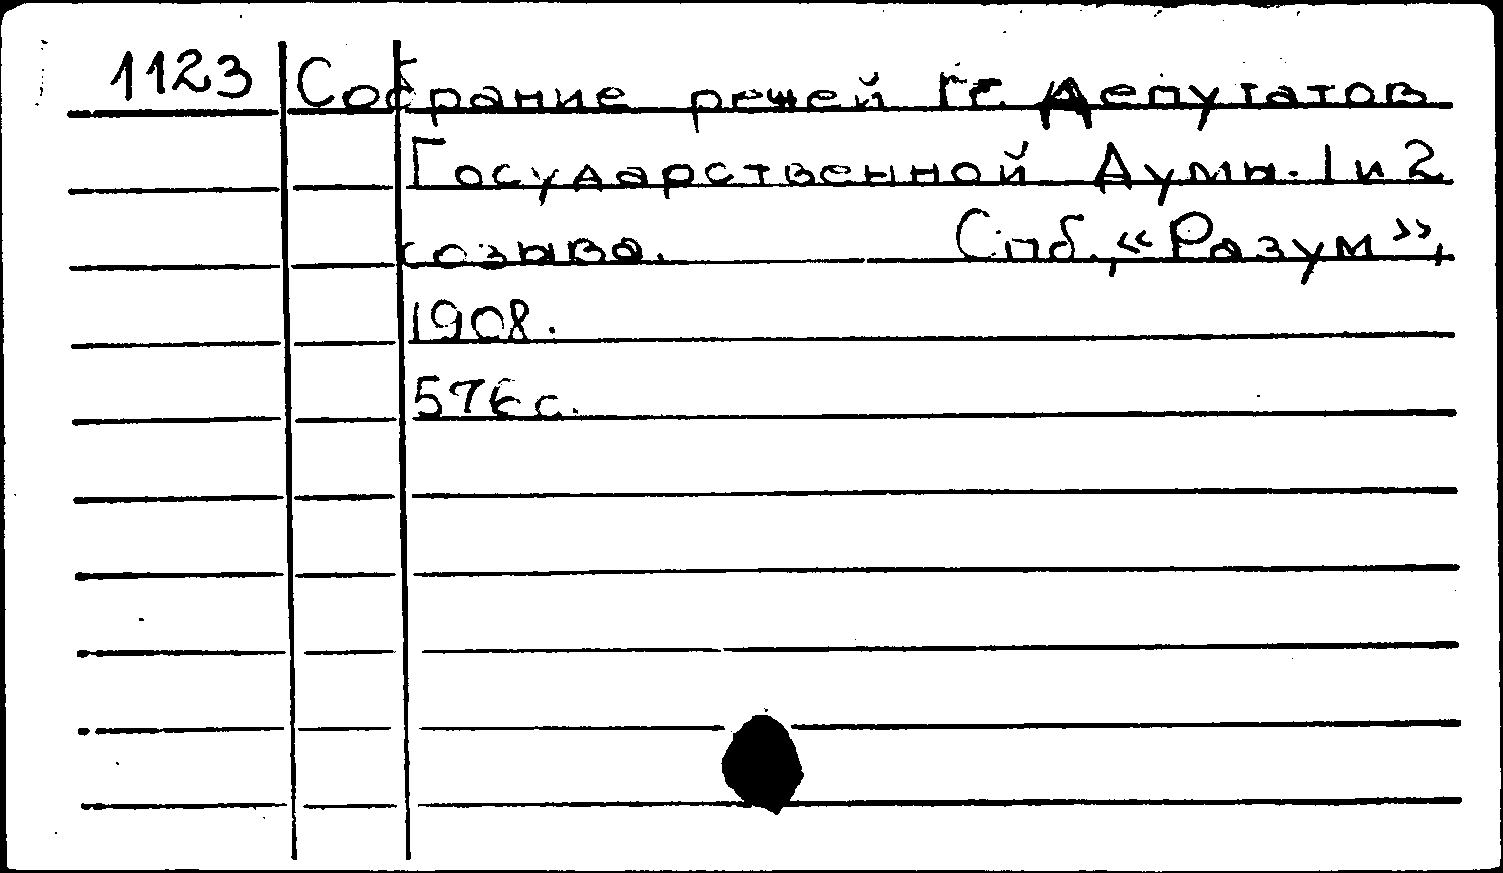 1123 Собрание речей гг. Депутатов
Государственной Думы. 1 и 2
созыва. Спб., «Разум»,
1908.
576 с.